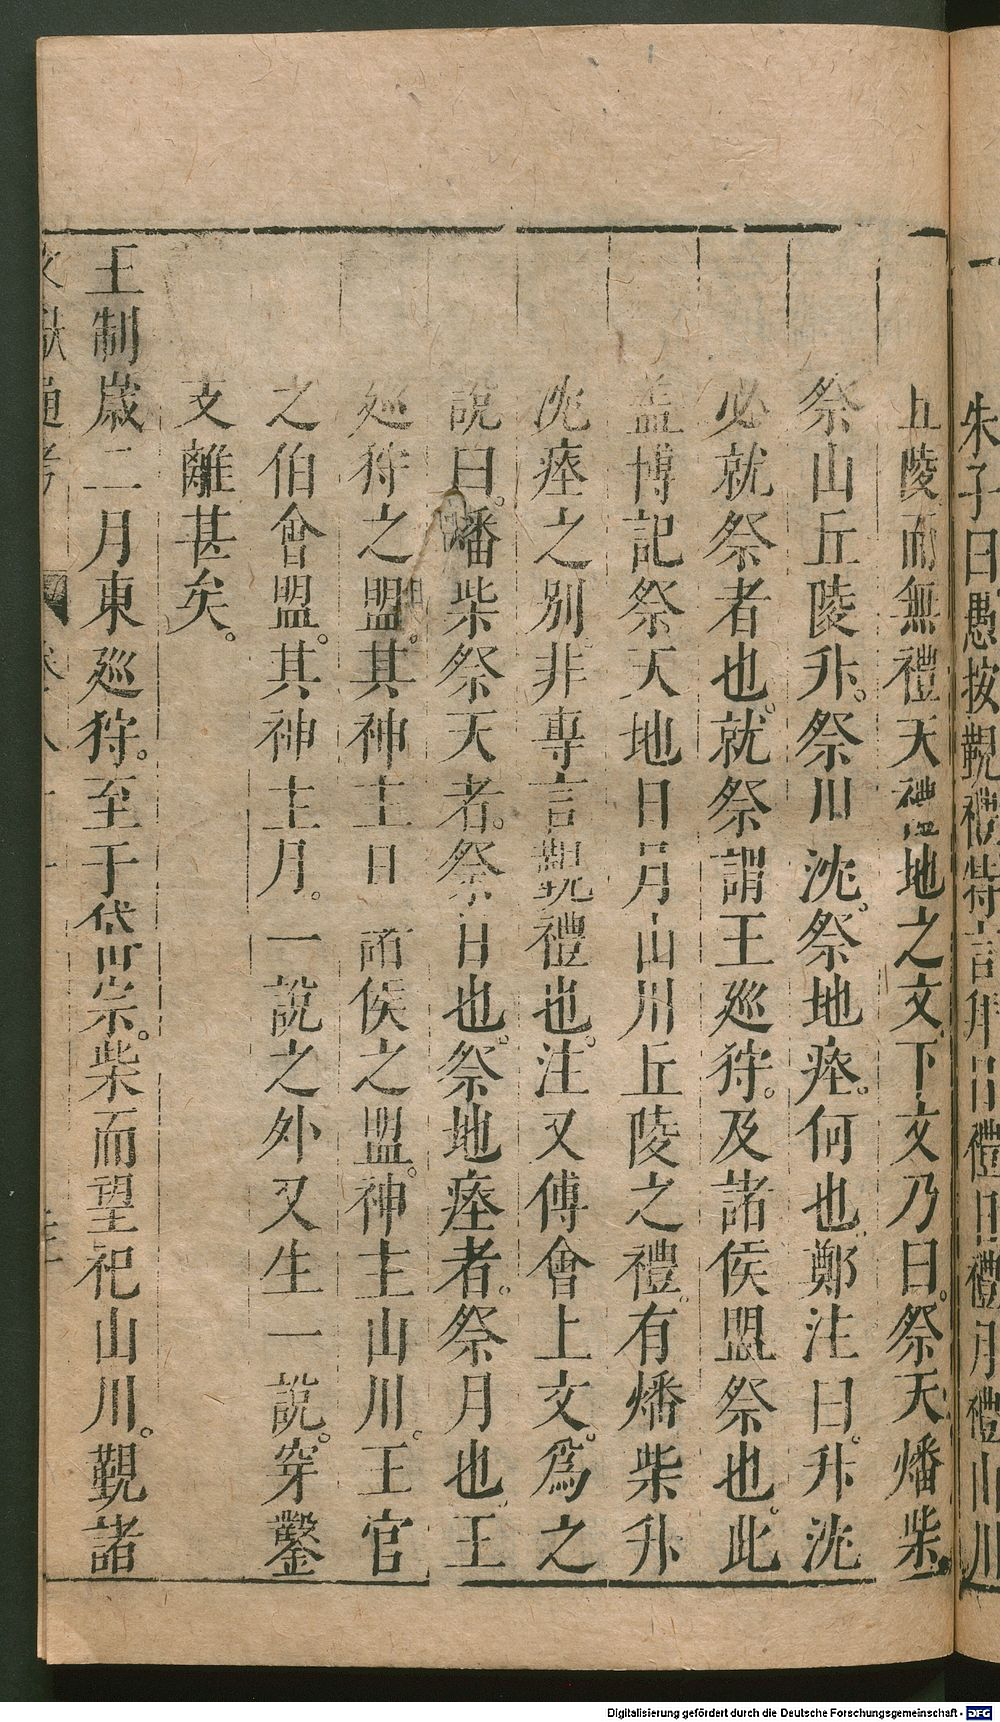 朱子曰愚按覲禮特言拜日禮日禮月禮山川
丘陵而無禮天禮地之文下文乃曰祭天燔柴
祭山丘陵升祭川沈祭地瘞何也鄭注曰升沈
必就祭者也就祭謂王巡狩及諸侯盟祭也此
盖博記祭天地日月山川丘陵之禮有燔柴升
沈瘞之别非專言覲禮也注又傅會上文爲之
說曰燔柴祭天者祭日也祭地瘞者祭月也王
巡狩之盟其神主日諸侯之盟神主山川王官
之伯會盟其神主月一說之外又生一說穿鑿
支離甚矣
王制歲二月東巡狩至于岱宗柴而望祀山川覲諸
文獻通考 卷八十
Digitalisierung gefördert durch die Deutsche Forschungsgemeinschaft - DFG